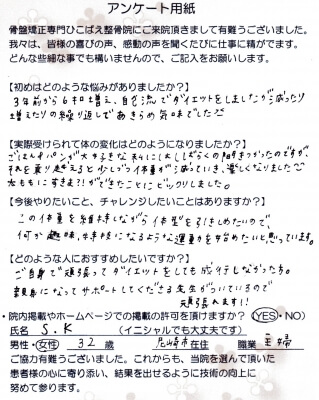 アンケート用紙
骨盤矯正専門ひこばえ整骨院にご来院頂きまして有難うございました。
我々は、皆様の喜びの声、感動の声を聞くたびに仕事に精がでます。
どんな些細な事でも構いませんので、ご記入をお願いします。
【初めはどのような悩みがありましたか?】
3年前から6キロ増え、自己流でダイエットをしましたが減ったり
増えたりの繰り返しであきらめ気味でした
【実際受けられて体の変化はどのようになりましたか?】
ごはんとパンが大好きな私にはしばらくの間きつかったのですが、
それを乗り越えると少しづつ体重が減っていき、楽しくなりました
太ももにすきま?!ができたことにビックリしました。
【今後やりたいこと、チャレンジしたいことはありますか?】
この体重を維持しながら体型を引きしめたいので、
何か趣味、特技になるような運動を始めたいと思っています。
【どのような人におすすめしたいですか?】
ご自身で頑張ってダイエットをしても成功しなかった方。
親身になってサポートしてくださる先生がついているので
頑張れます!!
・院内掲載やホームページでの掲載の許可を頂けますか?(YES・NO)
氏名 S.K (イニシャルでも大丈夫です)
男性・女性 32 歳 尼崎市 在住 職業 主婦
ご協力有難うございました。これからも、当院を選んで頂いた
患者様の心に寄り添い、結果を出せるように技術の向上に
努めて参ります。